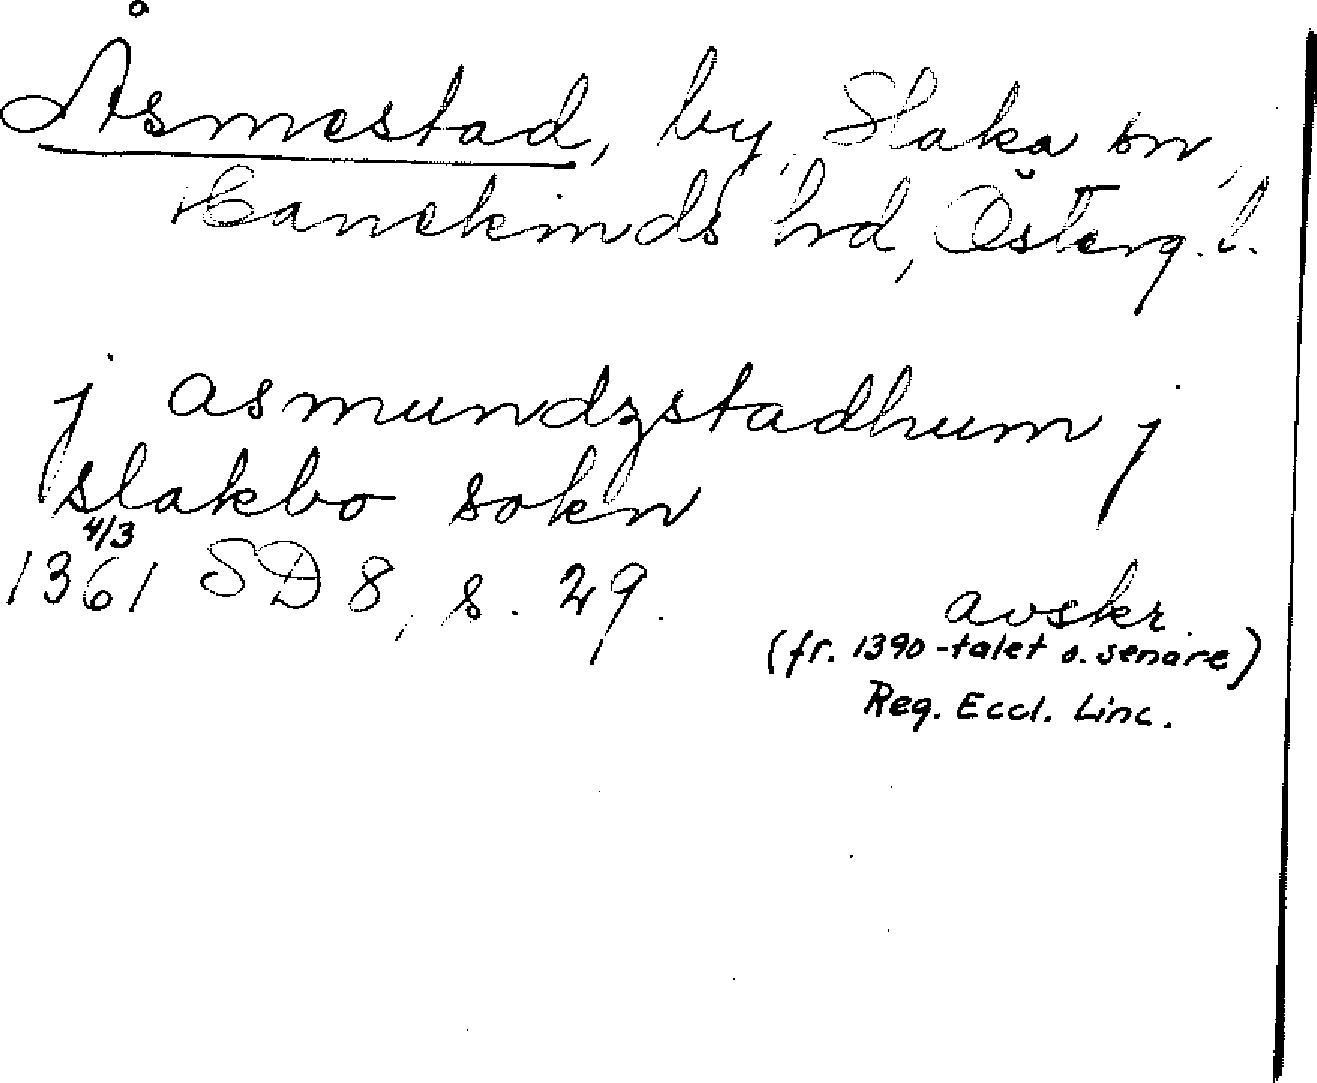 Åsmestad, by, Slaka sn,
Hanekinds hrd, Österg. l.
j asmundzstadhum j
slakbo sokn
4/3
1361 SD 8, s. 29. avskr.
(fr. 1390-talet o. senare)
Reg. Eccl. Linc.